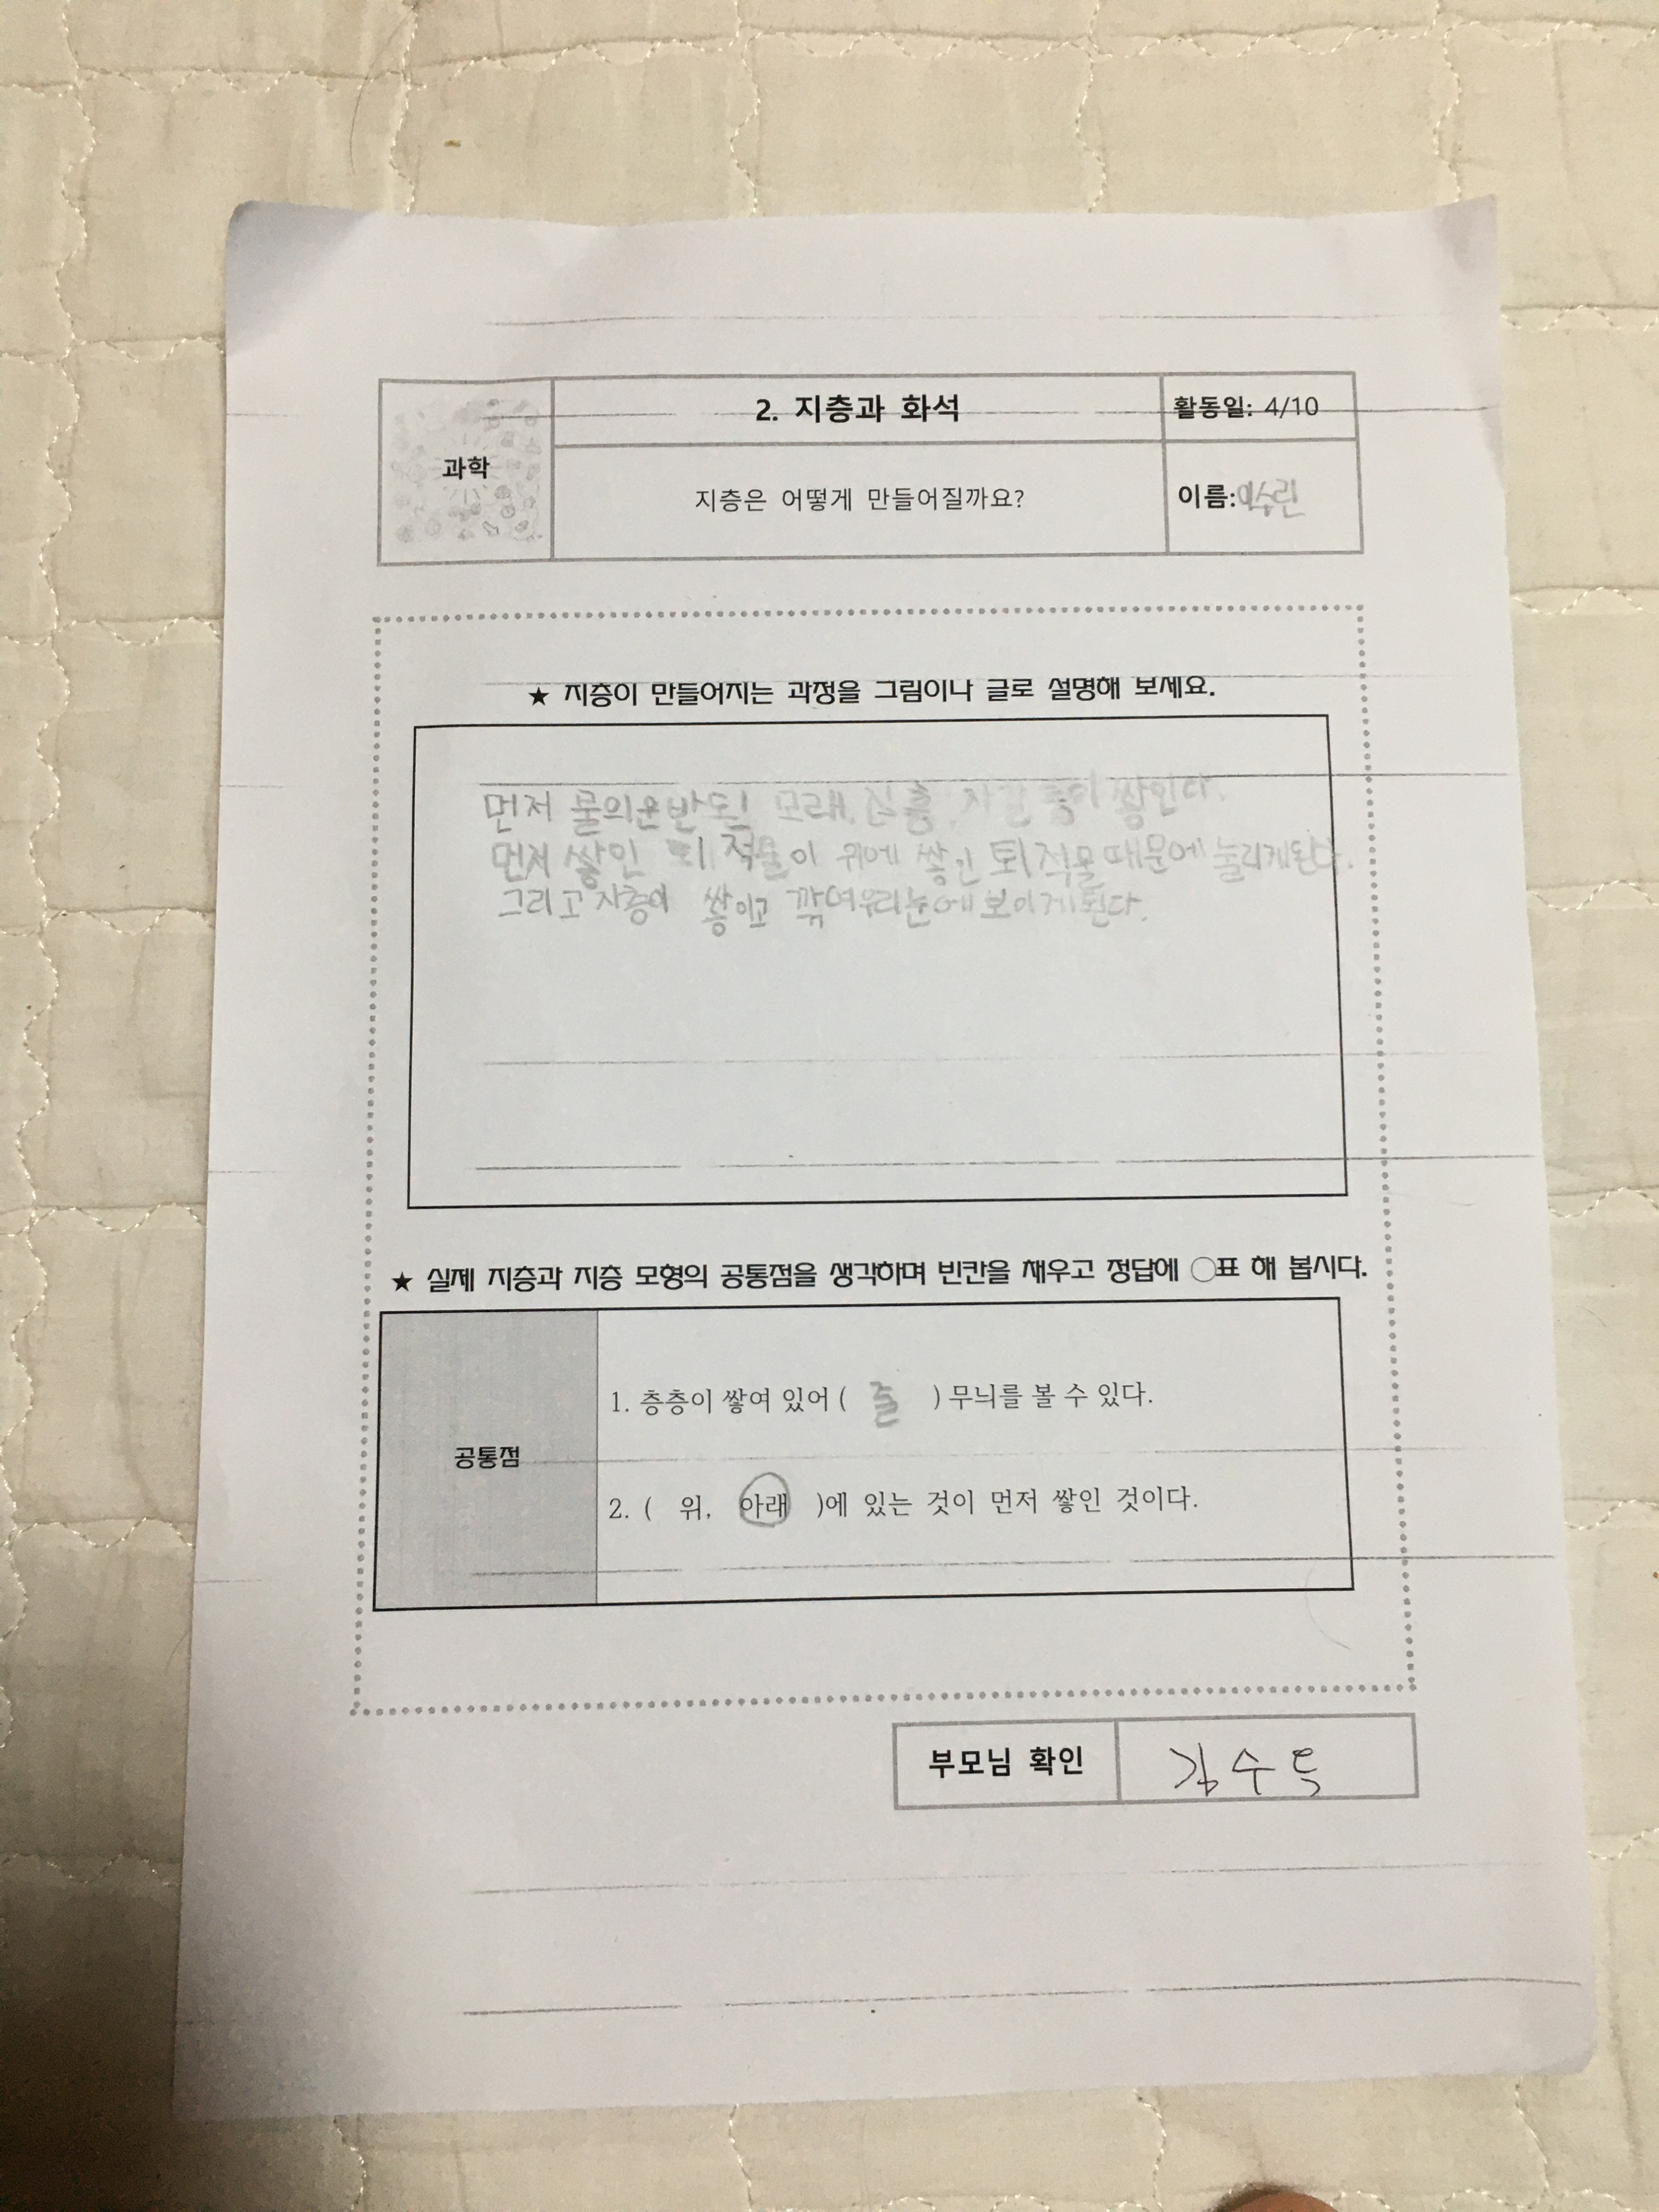 과학
2. 지층과 화석
활동일: 4/10
지층은 어떻게 만들어질까요?
이름:이수린
★ 지층이 만들어지는 과정을 그림이나 글로 설명해 보세요.
먼저 물의운반된 모래, 진흙, 자갈 등이 쌓인다.
먼저 쌓인 퇴적물이 위에 쌓인 퇴적물때문에 눌리게된다.
그리고 지층이 쌓이고 깎여우리눈에보이게된다.
★ 실제 지층과 지층 모형의 공통점을 생각하며 빈칸을 채우고 정답에 ○표 해 봅시다.
공통점
1. 층층이 쌓여 있어 ( 줄 ) 무늬를 볼 수 있다.
2. ( 위, 아래 )에 있는 것이 먼저 쌓인 것이다.
부모님 확인
김수득